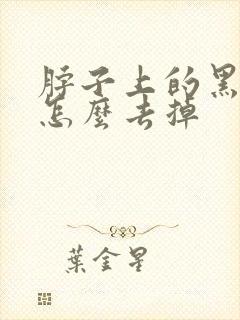 脖子上的黑
怎麼去掉
葉金星